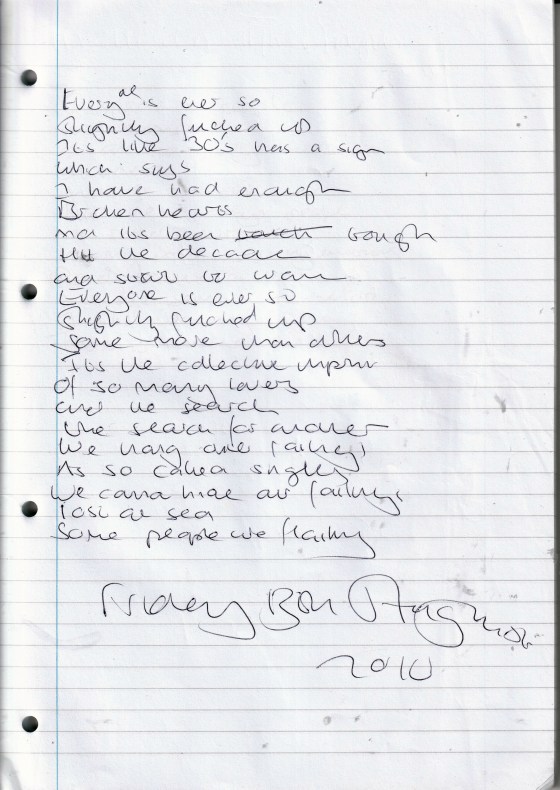 Everyone is ever so
Slightly fucked up
Its like 30's has a sign
which says
I have had enough
Broken hearts
and its been tough
the decade
and so
Everyone is ever so
Slightly fucked up
Some more than others
Its the collective
Of so many lovers
and the search
the search for another
We hang our failings
As so called singles
We hide our failings
lost at sea
Some people we
Friday
2010